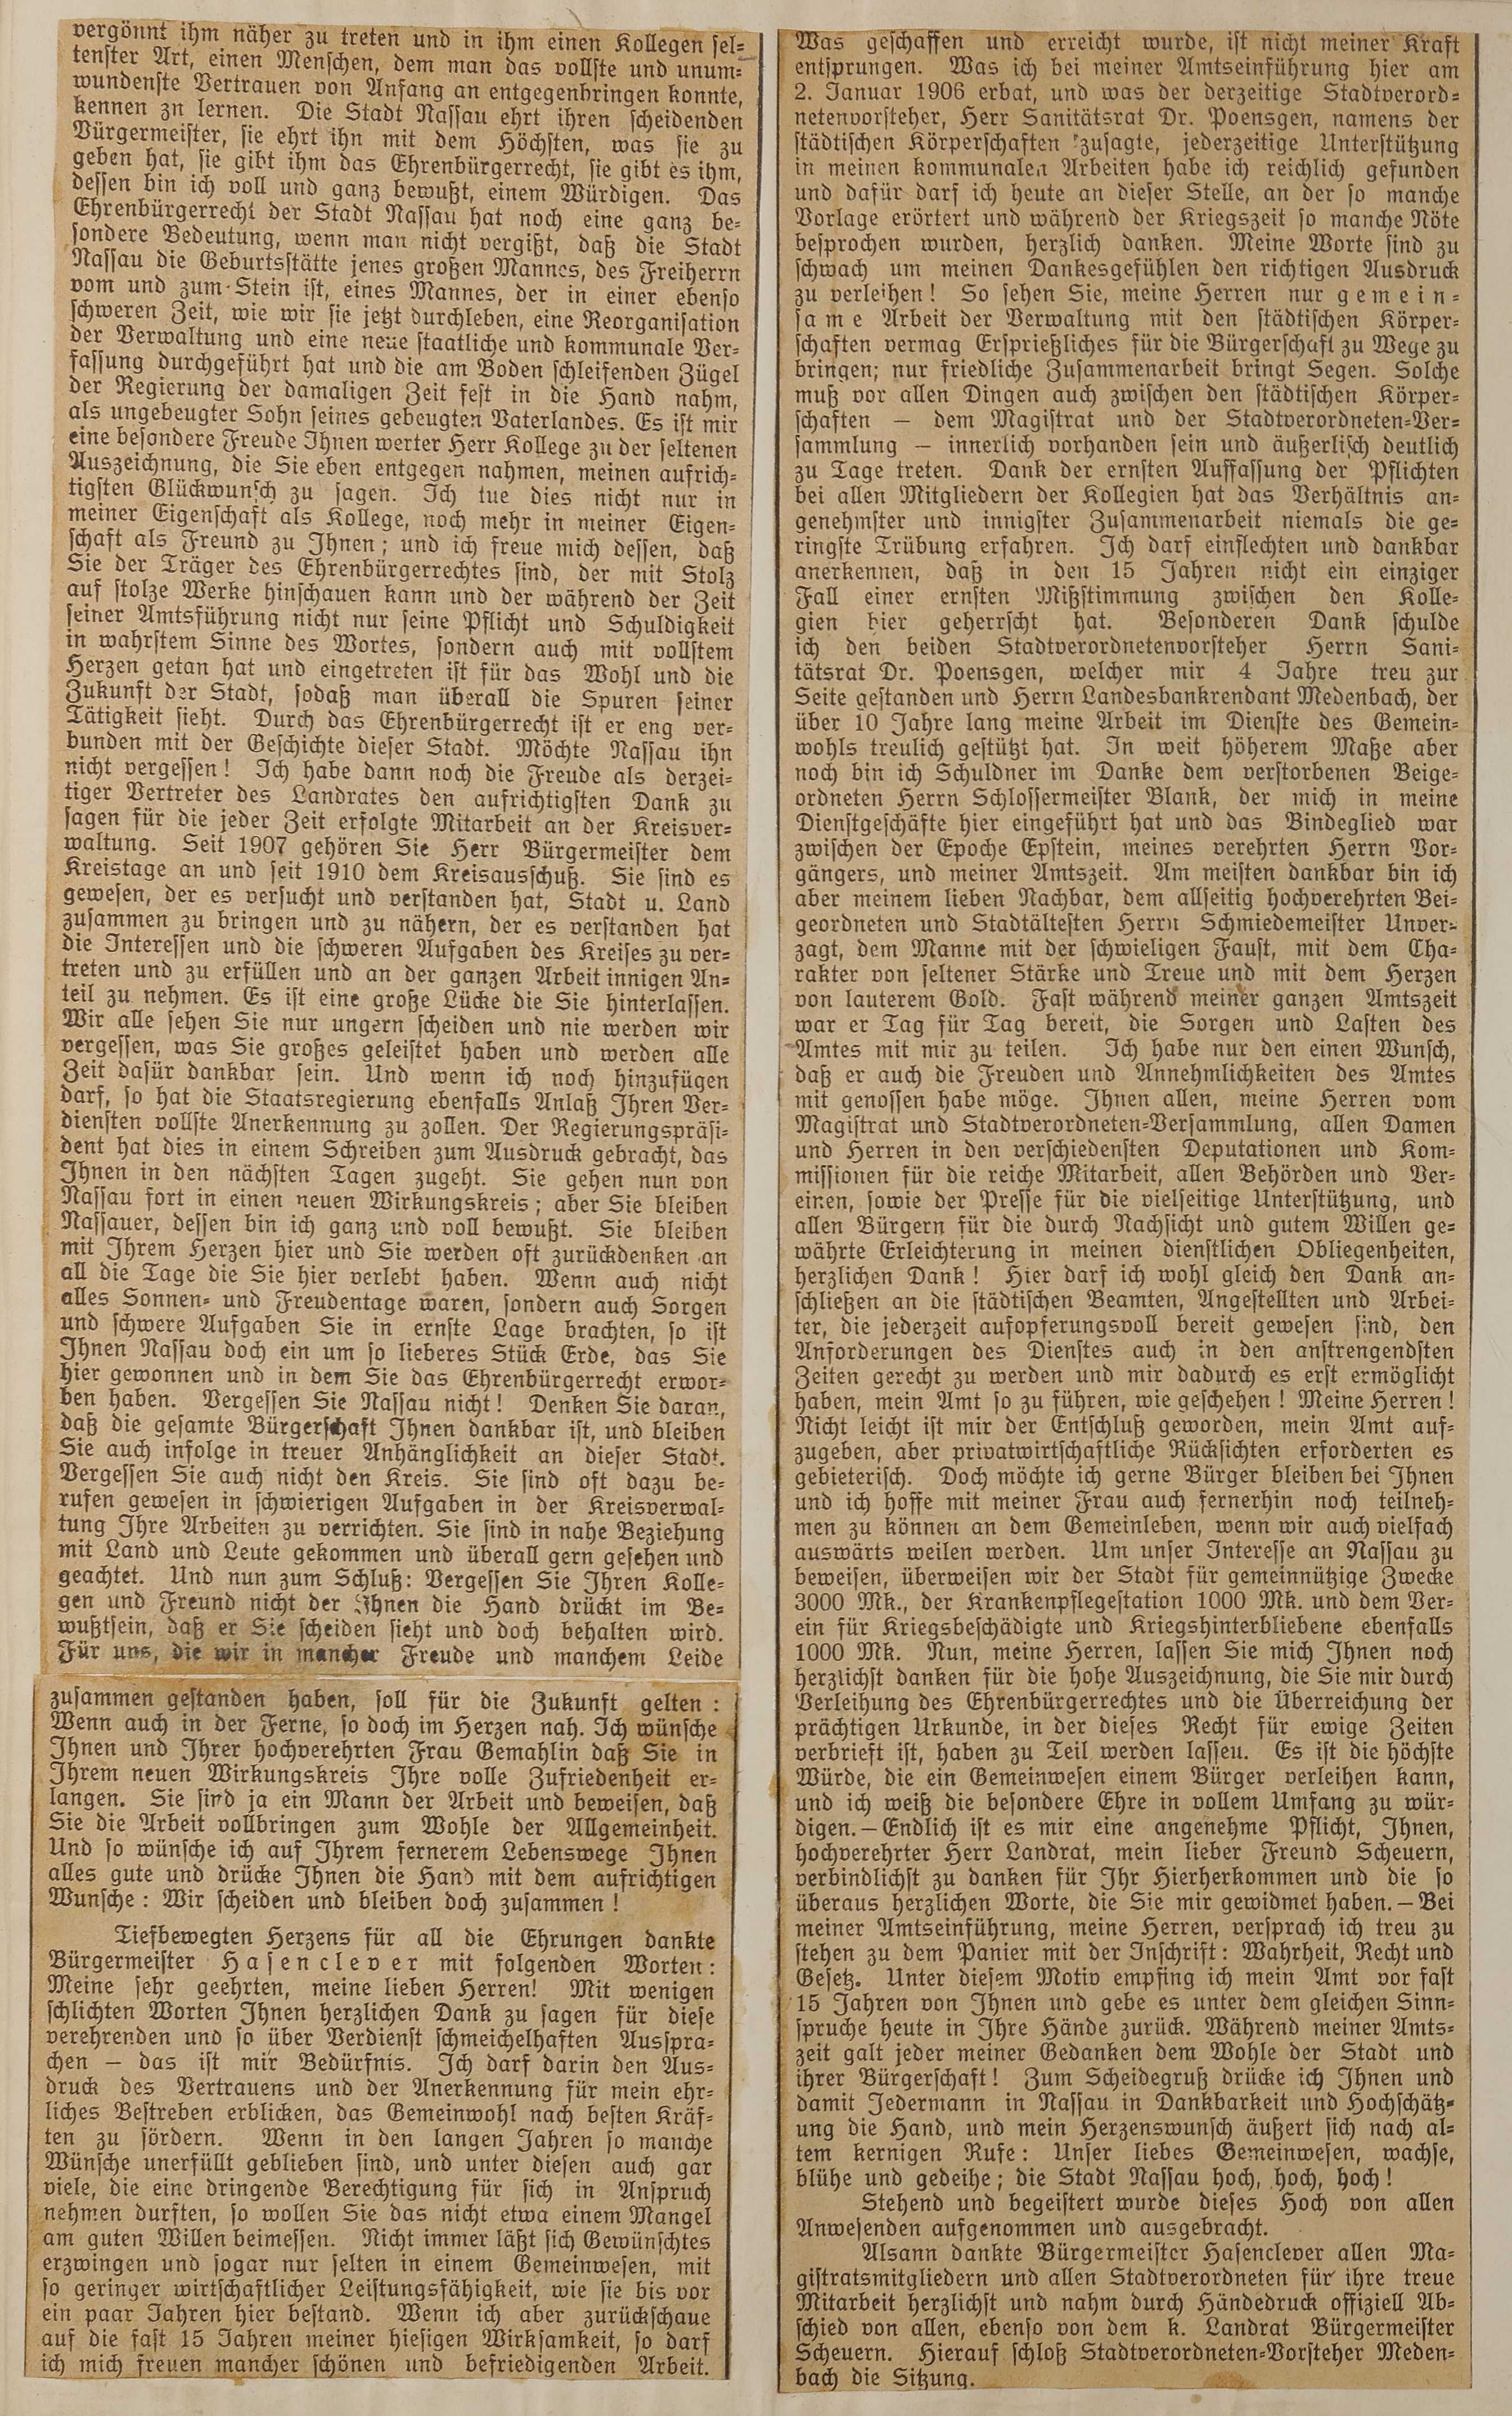 vergönnt ihm näher zu treten und in ihm einen Kollegen sel-
tenster Art, einen Menschen, dem man das vollste und unum-
wundenste Vertrauen von Anfang an entgegenbringen konnte,
kennen zu lernen. Die Stadt Nassau ehrt ihren scheidenden
Bürgermeister, sie ehrt ihn mit dem Höchsten, was sie zu
geben hat, sie gibt ihm das Ehrenbürgerrecht, sie gibt es ihm,
dessen bin ich voll und ganz bewußt, einem Würdigen. Das
Ehrenbürgerrecht der Stadt Nassau hat noch eine ganz be-
sondere Bedeutung, wenn man nicht vergißt, daß die Stadt
Nassau die Geburtsstätte jenes großen Mannes, des Freiherrn
vom und zum Stein ist, eines Mannes, der in einer ebenso
schweren Zeit, wie wir sie jetzt durchleben, eine Reorganisation
der Verwaltung und eine neue staatliche und kommunale Ver-
fassung durchgeführt hat und die am Boden schleifenden Zügel
der Regierung der damaligen Zeit fest in die Hand nahm,
als ungebeugter Sohn seines gebeugten Vaterlandes. Es ist mir
eine besondere Freude Ihnen werter Herr Kollege zu der seltenen
Auszeichnung, die Sie eben entgegen nahmen, meinen aufrich-
tigsten Glückwunsch zu sagen. Ich tue dies nicht nur in
meiner Eigenschaft als Kollege, noch mehr in meiner Eigen-
schaft als Freund zu Ihnen; und ich freue mich dessen, daß
Sie der Träger des Ehrenbürgerrechtes sind, der mit Stolz
auf stolze Werke hinschauen kann und der während der Zeit
seiner Amtsführung nicht nur seine Pflicht und Schuldigkeit
in wahrstem Sinne des Wortes, sondern auch mit vollstem
Herzen getan hat und eingetreten ist für das Wohl und die
Zukunft der Stadt, sodaß man überall die Spuren seiner
Tätigkeit sieht. Durch das Ehrenbürgerrecht ist er eng ver-
bunden mit der Geschichte dieser Stadt. Möchte Nassau ihn
nicht vergessen! Ich habe dann noch die Freude als derzei-
tiger Vertreter des Landrates den aufrichtigsten Dank zu
sagen für die jeder Zeit erfolgte Mitarbeit an der Kreisver-
waltung. Seit 1907 gehören Sie Herr Bürgermeister dem
Kreistage an und seit 1910 dem Kreisausschuß. Sie sind es
gewesen, der es versucht und verstanden hat, Stadt u. Land
zusammen zu bringen und zu nähern, der es verstanden hat
die Interessen und die schweren Aufgaben des Kreises zu ver-
treten und zu erfüllen und an der ganzen Arbeit innigen An-
teil zu nehmen. Es ist eine große Lücke die Sie hinterlassen.
Wir alle sehen Sie nur ungern scheiden und nie werden wir
vergessen, was Sie großes geleistet haben und werden alle
Zeit dafür dankbar sein. Und wenn ich noch hinzufügen
darf, so hat die Staatsregierung ebenfalls Anlaß Ihren Ver-
diensten vollste Anerkennung zu zollen. Der Regierungspräsi-
dent hat dies in einem Schreiben zum Ausdruck gebracht, das
Ihnen in den nächsten Tagen zugeht. Sie gehen nun von
Nassau fort in einen neuen Wirkungskreis; aber Sie bleiben
Nassauer, dessen bin ich ganz und voll bewußt. Sie bleiben
mit Ihrem Herzen hier und Sie werden oft zurückdenken an
all die Tage die Sie hier verlebt haben. Wenn auch nicht
alles Sonnen- und Freudentage waren, sondern auch Sorgen
und schwere Aufgaben Sie in ernste Lage brachten, so ist
Ihnen Nassau doch ein um so lieberes Stück Erde, das Sie
hier gewonnen und in dem Sie das Ehrenbürgerrecht erwor-
ben haben. Vergessen Sie Nassau nicht! Denken Sie daran,
daß die gesamte Bürgerschaft Ihnen dankbar ist, und bleiben
Sie auch infolge in treuer Anhänglichkeit an dieser Stadt.
Vergessen Sie auch nicht den Kreis. Sie sind oft dazu be-
rufen gewesen in schwierigen Aufgaben in der Kreisverwal-
tung Ihre Arbeiten zu verrichten. Sie sind in nahe Beziehung
mit Land und Leute gekommen und überall gern gesehen und
geachtet. Und nun zum Schluß: Vergessen Sie Ihren Kolle-
gen und Freund nicht der Ihnen die Hand drückt im Be-
wußtsein, daß er Sie scheiden sieht und doch behalten wird.
Für uns, die wir in mancher Freude und manchem Leide
zusammen gestanden haben, soll für die Zukunft gelten:
Wenn auch in der Ferne, so doch im Herzen nah. Ich wünsche
Ihnen und Ihrer hochverehrten Frau Gemahlin daß Sie in
Ihrem neuen Wirkungskreis Ihre volle Zufriedenheit er-
langen. Sie sind ja ein Mann der Arbeit und beweisen, daß
Sie die Arbeit vollbringen zum Wohle der Allgemeinheit.
Und so wünsche ich auf Ihrem fernerem Lebenswege Ihnen
alles gute und drücke Ihnen die Hand mit dem aufrichtigen
Wunsche: Wir scheiden und bleiben doch zusammen!
Tiefbewegten Herzens für all die Ehrungen dankte
Bürgermeister Hasenclever mit folgenden Worten:
Meine sehr geehrten, meine lieben Herren! Mit wenigen
schlichten Worten Ihnen herzlichen Dank zu sagen für diese
verehrenden und so über Verdienst schmeichelhaften Ausspra-
chen — das ist mir Bedürfnis. Ich darf darin den Aus-
druck des Vertrauens und der Anerkennung für mein ehr-
liches Bestreben erblicken, das Gemeinwohl nach besten Kräf-
ten zu fördern. Wenn in den langen Jahren so manche
Wünsche unerfüllt geblieben sind, und unter diesen auch gar
viele, die eine dringende Berechtigung für sich in Anspruch
nehmen durften, so wollen Sie das nicht etwa einem Mangel
am guten Willen beimessen. Nicht immer läßt sich Gewünschtes
erzwingen und sogar nur selten in einem Gemeinwesen, mit
so geringer wirtschaftlicher Leistungsfähigkeit, wie sie bis vor
ein paar Jahren hier bestand. Wenn ich aber zurückschaue
auf die fast 15 Jahren meiner hiesigen Wirksamkeit, so darf
ich mich freuen mancher schönen und befriedigenden Arbeit.
Was geschaffen und erreicht wurde, ist nicht meiner Kraft
entsprungen. Was ich bei meiner Amtseinführung hier am
2. Januar 1906 erbat, und was der derzeitige Stadtverord-
netenvorsteher, Herr Sanitätsrat Dr. Poensgen, namens der
städtischen Körperschaften zusagte, jederzeitige Unterstützung
in meinen kommunalen Arbeiten habe ich reichlich gefunden
und dafür darf ich heute an dieser Stelle, an der so manche
Vorlage erörtert und während der Kriegszeit so manche Nöte
besprochen wurden, herzlich danken. Meine Worte sind zu
schwach um meinen Dankesgefühlen den richtigen Ausdruck
zu verleihen! So sehen Sie, meine Herren nur gemein-
same Arbeit der Verwaltung mit den städtischen Körper-
schaften vermag Ersprießliches für die Bürgerschaft zu Wege zu
bringen; nur friedliche Zusammenarbeit bringt Segen. Solche
muß vor allen Dingen auch zwischen den städtischen Körper-
schaften — dem Magistrat und der Stadtverordneten-Ver-
sammlung — innerlich vorhanden sein und äußerlich deutlich
zu Tage treten. Dank der ernsten Auffassung der Pflichten
bei allen Mitgliedern der Kollegien hat das Verhältnis an-
genehmster und innigster Zusammenarbeit niemals die ge-
ringste Trübung erfahren. Ich darf einflechten und dankbar
anerkennen, daß in den 15 Jahren nicht ein einziger
Fall einer ernsten Mißstimmung zwischen den Kolle-
gien hier geherrscht hat. Besonderen Dank schulde
ich den beiden Stadtverordnetenvorsteher Herrn Sani-
tätsrat Dr. Poensgen, welcher mir 4 Jahre treu zur
Seite gestanden und Herrn Landesbankrendant Medenbach, der
über 10 Jahre lang meine Arbeit im Dienste des Gemein-
wohls treulich gestützt hat. In weit höherem Maße aber
noch bin ich Schuldner im Danke dem verstorbenen Beige-
ordneten Herrn Schlossermeister Blank, der mich in meine
Dienstgeschäfte hier eingeführt hat und das Bindeglied war
zwischen der Epoche Epstein, meines verehrten Herrn Vor-
gängers, und meiner Amtszeit. Am meisten dankbar bin ich
aber meinem lieben Nachbar, dem allseitig hochverehrten Bei-
geordneten und Stadtältesten Herrn Schmiedemeister Unver-
zagt, dem Manne mit der schwieligen Faust, mit dem Cha-
rakter von seltener Stärke und Treue und mit dem Herzen
von lauterem Gold. Fast während meiner ganzen Amtszeit
war er Tag für Tag bereit, die Sorgen und Lasten des
Amtes mit mir zu teilen. Ich habe nur den einen Wunsch,
daß er auch die Freuden und Annehmlichkeiten des Amtes
mit genossen habe möge. Ihnen allen, meine Herren vom
Magistrat und Stadtverordneten-Versammlung, allen Damen
und Herren in den verschiedensten Deputationen und Kom-
missionen für die reiche Mitarbeit, allen Behörden und Ver-
einen, sowie der Presse für die vielseitige Unterstützung, und
allen Bürgern für die durch Nachsicht und gutem Willen ge-
währte Erleichterung in meinen dienstlichen Obliegenheiten,
herzlichen Dank! Hier darf ich wohl gleich den Dank an-
schließen an die städtischen Beamten, Angestellten und Arbei-
ter, die jederzeit aufopferungsvoll bereit gewesen sind, den
Anforderungen des Dienstes auch in den anstrengendsten
Zeiten gerecht zu werden und mir dadurch es erst ermöglicht
haben, mein Amt so zu führen, wie geschehen! Meine Herren!
Nicht leicht ist mir der Entschluß geworden, mein Amt auf-
zugeben, aber privatwirtschaftliche Rücksichten erforderten es
gebieterisch. Doch möchte ich gerne Bürger bleiben bei Ihnen
und ich hoffe mit meiner Frau auch fernerhin noch teilneh-
men zu können an dem Gemeinleben, wenn wir auch vielfach
auswärts weilen werden. Um unser Interesse an Nassau zu
beweisen, überweisen wir der Stadt für gemeinnützige Zwecke
3000 Mk., der Krankenpflegestation 1000 Mk. und dem Ver-
ein für Kriegsbeschädigte und Kriegshinterbliebene ebenfalls
1000 Mk. Nun, meine Herren, lassen Sie mich Ihnen noch
herzlichst danken für die hohe Auszeichnung, die Sie mir durch
Verleihung des Ehrenbürgerrechtes und die Überreichung der
prächtigen Urkunde, in der dieses Recht für ewige Zeiten
verbrieft ist, haben zu Teil werden lassen. Es ist die höchste
Würde, die ein Gemeinwesen einem Bürger verleihen kann,
und ich weiß die besondere Ehre in vollem Umfang zu wür-
digen. — Endlich ist es mir eine angenehme Pflicht, Ihnen,
hochverehrter Herr Landrat, mein lieber Freund Scheuern,
verbindlichst zu danken für Ihr Hierherkommen und die so
überaus herzlichen Worte, die Sie mir gewidmet haben. — Bei
meiner Amtseinführung, meine Herren, versprach ich treu zu
stehen zu dem Panier mit der Inschrift: Wahrheit, Recht und
Gesetz. Unter diesem Motiv empfing ich mein Amt vor fast
15 Jahren von Ihnen und gebe es unter dem gleichen Sinn-
spruche heute in Ihre Hände zurück. Während meiner Amts-
zeit galt jeder meiner Gedanken dem Wohle der Stadt und
ihrer Bürgerschaft! Zum Scheidegruß drücke ich Ihnen und
damit Jedermann in Nassau in Dankbarkeit und Hochschätz-
ung die Hand, und mein Herzenswunsch äußert sich nach al-
tem kernigen Rufe: Unser liebes Gemeinwesen, wachse,
blühe und gedeihe; die Stadt Nassau hoch, hoch, hoch!
Stehend und begeistert wurde dieses Hoch von allen
Anwesenden aufgenommen und ausgebracht.
Alsann dankte Bürgermeister Hasenclever allen Ma-
gistratsmitgliedern und allen Stadtverordneten für ihre treue
Mitarbeit herzlichst und nahm durch Händedruck offiziell Ab-
schied von allen, ebenso von dem k. Landrat Bürgermeister
Scheuern. Hierauf schloß Stadtverordneten-Vorsteher Meden-
bach die Sitzung.